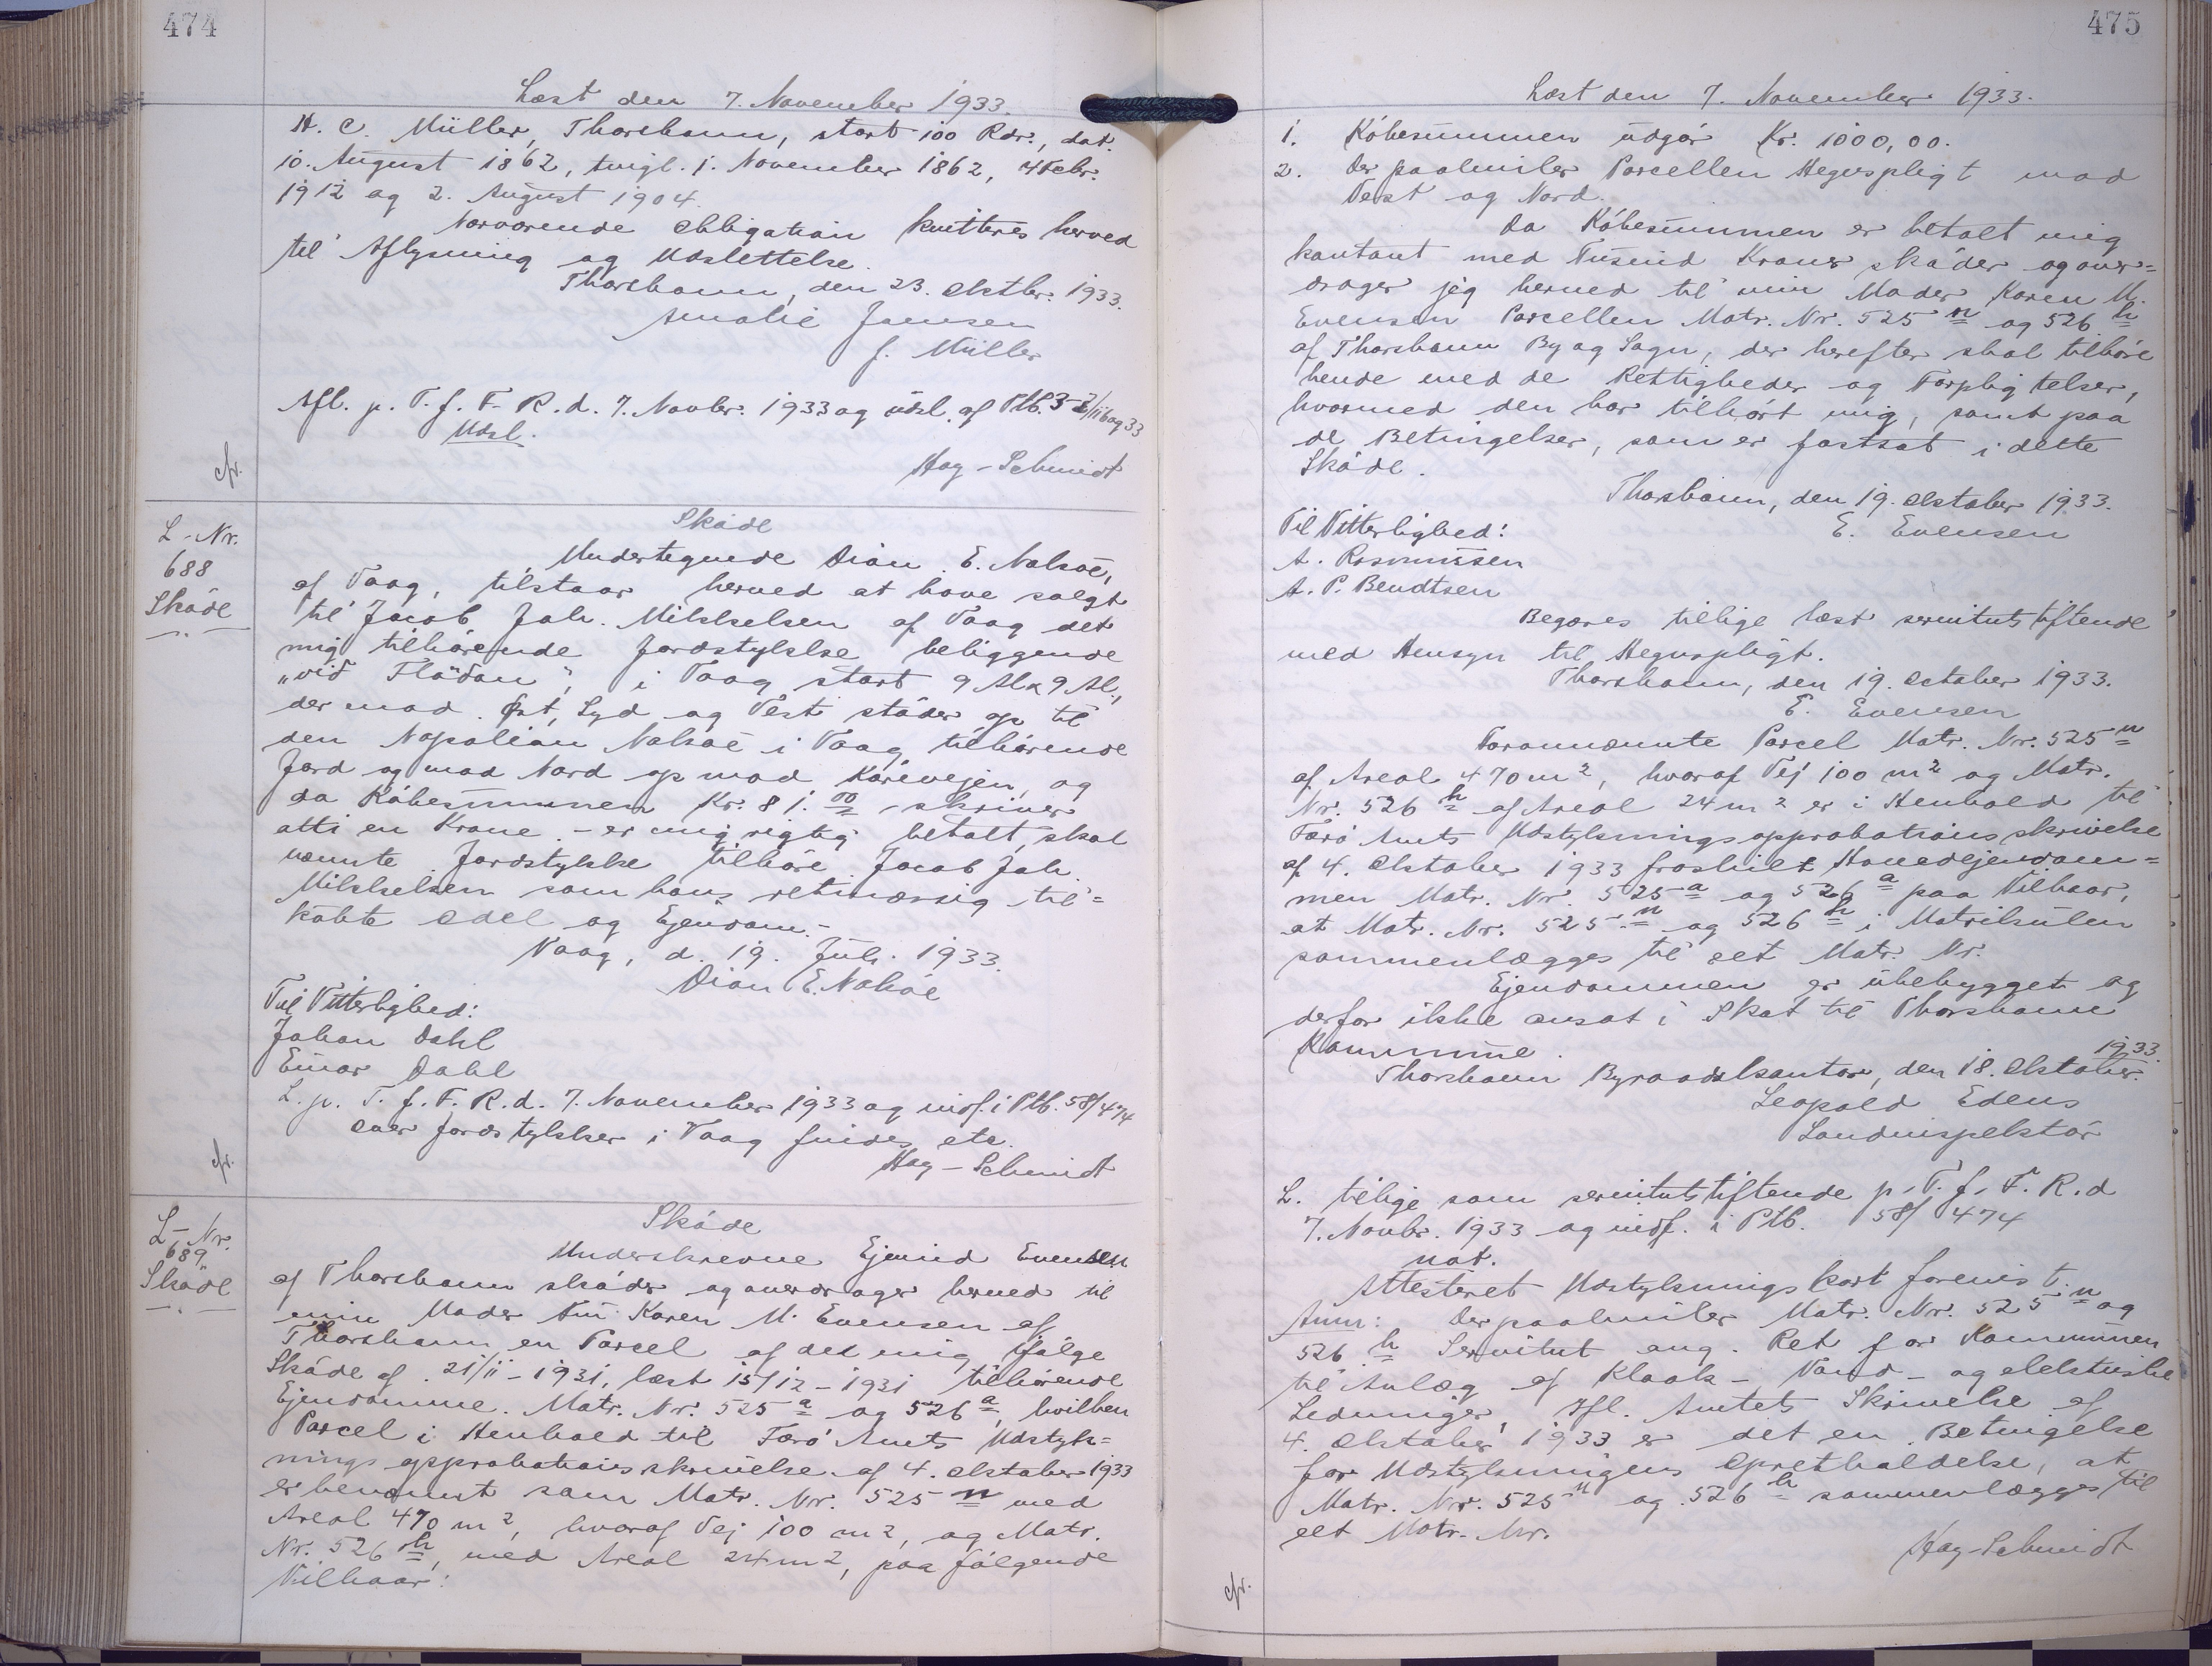 474
Læst den 7. November 1933.
H. C. Müller, Thorshavn, stort 100 Rdr., dat.
10. August 1862, tingl. 1. November 1862, 4 Febr.
1912 og 2. August 1904.
Nærværende Obligation kvitteres herved
til Aflysning og Udslettelse.
Thorshavn, den 23. Oktbr. 1933.
Amalie Jensen
J. Müller
Afl. p. T. f. F. R. d. 7. Novbr. 1933 og udsl. af Ptb.
Udsl.
Hay-Schmidt
cfr.
L-Nr.
688
Skøde
Skøde
Undertegnede Dion E. Nolsøe,
af Vaag, tilstaar herved at have solgt
til Jacob Joh. Mikkelsen af Vaag det
mig tilhørende Jordstykke beliggende
"við Fløðan", i Vaag stort 9 Al x 9 Al.,
der mod Øst, Syd og Vest støder op til
den Napolion Nolsøe i Vaag tilhørende
Jord og mod Nord op mod Kørevejen, og
da Købesummen Kr. 81.00 - skriver
otti en Krone - er mig rigtig betalt, skal
nævnte Jordstykke tilhøre Jacob Joh.
Mikkelsen som hans retmæssig til=
købte Odel og Ejendom.-
Vaag, d. 19. Juli 1933.
Dion E. Nolsøe
Til Vitterlighed:
Johan Dahl
Einar Dahl
L. p. T. f. F. R. d. 7. November 1933 og indf. i Ptb. 58/474
over Jordstykker i Vaag findes etc.
Hay-Schmidt
cfr.
L-Nr.
689
Skøde
Skøde
Underskrevne Ejvind Evensen
af Thorshavn skøder og overdrager herved til
min Moder Fru Karen M. Evensen af
Thorshavn en Parcel af det mig ifølge
Skøde af 21/11-1931, læst 15/12-1931 tilhørende
Ejendomme. Matr. Nr. 525 a og 526 a, hvilken
Parcel i Henhold til Færø Amts Udstyk=
nings approbationsskrivelse af 4. Oktober 1933
er benævnt som Matr. Nr. 525 n med
Areal 470 m2, hvoraf Vej 100 m2, og Matr.
Nr. 526 h, med Areal 24 m2, paa følgende
Vilkaar:
475
Læst den 7. November 1933.
1. Købesummen udgør Kr. 1000,00.
2. Der paahviler Parcellen Hegnspligt mod
Vest og Nord.
Da Købesummen er betalt mig
kontant med Tusind Kroner skøder og over=
drager jeg herved til min Moder Karen M.
Evensen Parcellen Matr. Nr. 525 n og 526 h
af Thorshavn By og Sogn, der herefter skal tilhøre
hende med de Rettigheder og Forpligtelser,
hvormed den har tilhørt mig, samt paa
de Betingelser, som er fastsat i dette
Skøde.
Thorshavn, den 19. Oktober 1933.
Til Vitterlighed:
E. Evensen
A. Rasmussen
A. P. Bendtsen
Begæres tillige læst servitutstiftende
med Hensyn til Hegnspligt.
Thorshavn, den 19. October 1933.
E. Evensen
Forannævnte Parcel Matr. Nr. 525 n
af Areal 470 m2, hvoraf Vej 100 m2 og Matr.
Nr. 526 h af Areal 24 m2 er i Henhold til
Færø Amts Udstykningsapprobationsskrivelse
af 4. Oktober 1933 fraskilt Hovedejendom=
men Matr. Nr. 525 a og 526 a paa Vilkaar,
at Matr. Nr. 525 n og 526 h i Matrikulen
sammenlægges til eet Matr. Nr.
Ejendommen er ubebygget og
derfor ikke ansat i Skat til Thorshavn
Kommune.
Thorshavn Byraadskontor, den 18. Oktober 1933.
Leopold Edens
Landinspektør
L. tillige som servitutstiftende p. T. f. F. R. d
7. Novbr. 1933 og indf. i Ptb. 58/474
not.
Attesteret Udstykningskort forevist.
Anm: Der paahviler Matr. Nr. 525 n og
526 h Servitut ang. Ret for Kommunen
til Anlæg af Kloak- Vand- og elektriske
Ledninger, Ifl. Amtets Skrivelse af
4. Oktober 1933 er det en Betingelse
for Udstykningens Opretholdelse, at
Matr. Nr. 525 n og 526 h sammenlægges til
eet Matr. Nr.
Hay-Schmidt
cfr.